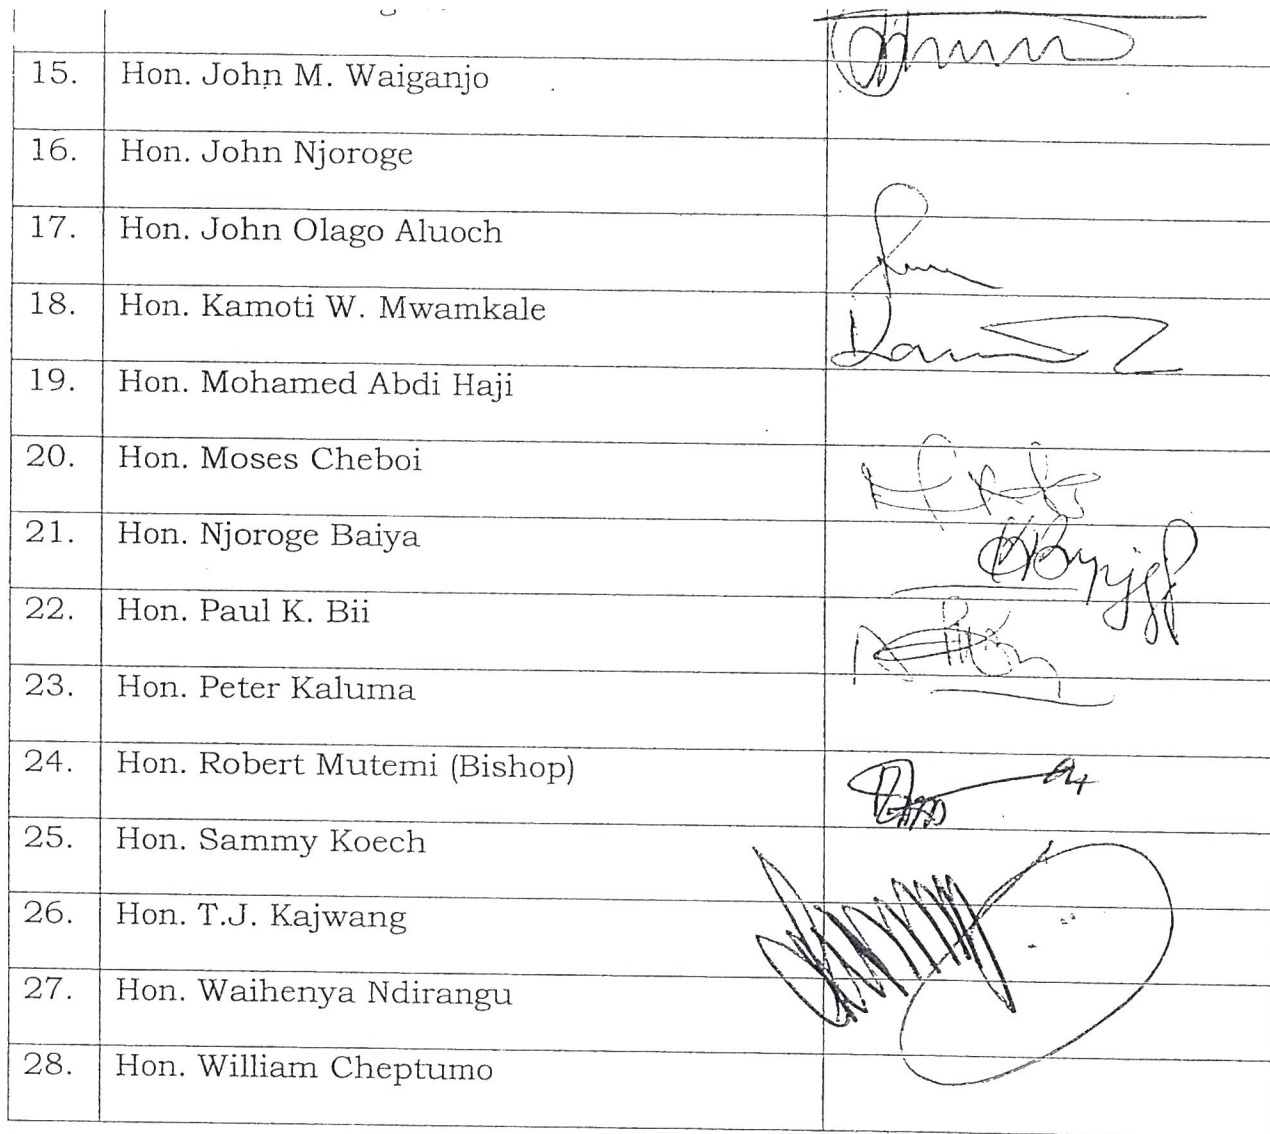 15. Hon. John M. Waiganjo
16. Hon. John Njoroge
17. Hon. John Olago Aluoch
18. Hon. Kamoti W. Mwamkale
19. Hon. Mohamed Abdi Haji
20. Hon. Moses Cheboi
21. Hon. Njoroge Baiya
22. Hon. Paul K. Bii
23. Hon. Peter Kaluma
24. Hon. Robert Mutemi (Bishop)
25. Hon. Sammy Koech
26. Hon. T.J. Kajwang
27. Hon. Waihenya Ndirangu
28. Hon. William Cheptumo